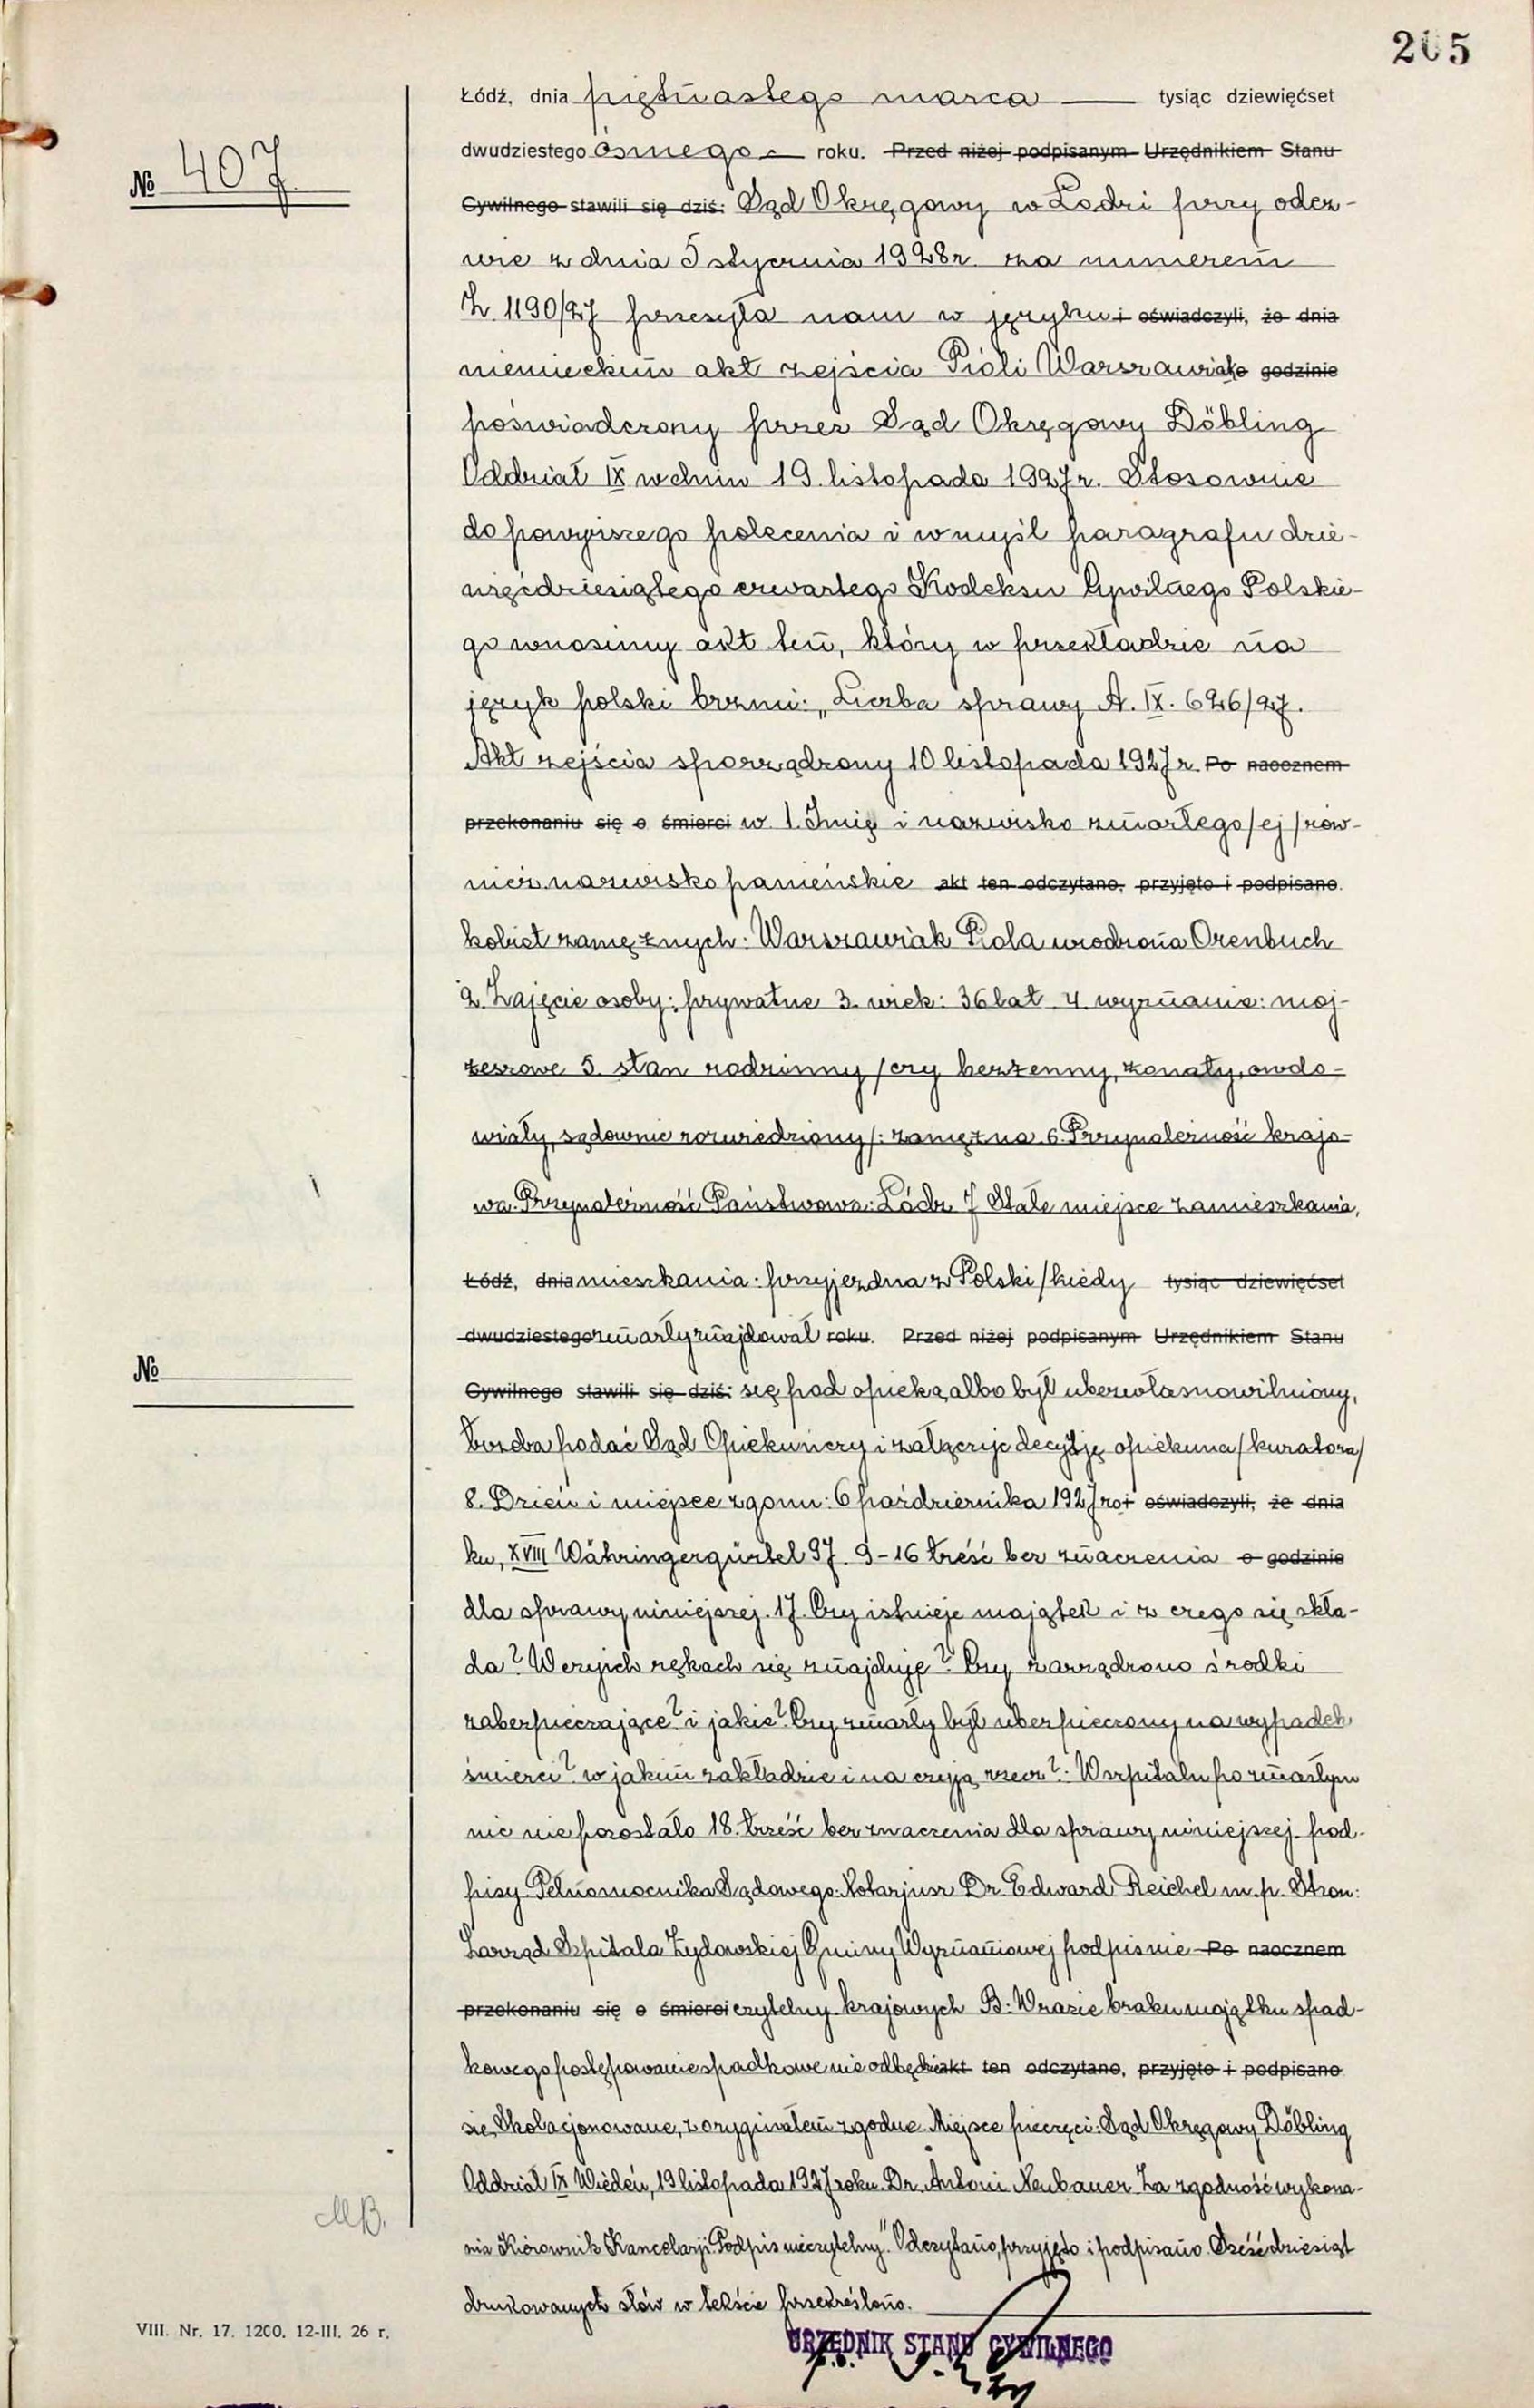 205
Łódź, dnia piętnastego marca tysiąc dziewięćset
№ 407
dwudziestego ósmego roku. Przed niżej podpisanym Urzędnikiem Stanu
Cywilnego stawili się dziś: Sąd Okręgowy w Łodzi przy odez-
wie z dnia 5 stycznia 1928 r. za numerem
Z. 1190/27 przesyła nam w języku i oświadczyli, że dnia
niemieckim akt zejścia Pióli Warszawiak o godzinie
poświadczony przez Sąd Okręgowy Döbling
Oddział IX w dniu 19. listopada 1927 r. Stosownie
do powyższego polecenia i w myśl paragrafu dzie-
więćdziesiątego czwartego Kodeksu Cywilnego Polskie-
go wnosimy akt ten, który w przekładzie na
język polski brzmi: „Liczba sprawy A. IX. 626/27.
Akt zejścia sporządzony 10 listopada 1927 r. Po naocznem
przekonaniu się o śmierci w. 1. Imię i nazwisko zmarłego/ej/rów-
nież nazwisko panieńskie akt ten odczytano, przyjęto i podpisano.
kobiet zamężnych: Warszawiak Piola urodzona Orenbuch
2. Zajęcie osoby: prywatne 3. wiek: 36 lat 4. wyznanie: moj-
żeszowe 5. stan rodzinny /czy bezżenny, żonaty, owdo-
wiały, sądownie rozwiedziony/: zamężna 6. Przynależność krajo-
wa. Przynależność Państwowa: Łódź 7 Stałe miejsce zamieszkania,
Łódź, dnia mieszkania: przyjezdna z Polski /kiedy tysiąc dziewięćset
dwudziestego zmarły znajdował roku. Przed niżej podpisanym Urzędnikiem Stanu
№
Cywilnego stawili się dziś: się pod opieką, albo był ubezwłasnowolniony,
trzeba podać Sąd Opiekuńczy i załączyć decyzję opiekuna/kuratora/
8. Dzień i miejsce zgonu: 6 października 1927 ro i oświadczyli, że dnia
ku, XVIII Währingergürtel 97. 9-16 treść bez znaczenia o godzinie
dla sprawy niniejszej. 17. Czy istnieje majątek i z czego się skła-
da? W czyich rękach się znajduje? Czy zarządzono środki
zabezpieczające? i jakie? Czy zmarły był ubezpieczony na wypadek
śmierci? w jakim zakładzie i na czyją rzecz?: W szpitalu po zmarłym
nic nie pozostało 18. treść bez znaczenia dla sprawy niniejszej. pod-
pisy. Pełnomocnika Sądowego: Notarjusz Dr. Edward Reichel m. p. Stron:
Zarząd Szpitala Żydowskiej Gminy Wyznaniowej podpis nie Po naocznem
przekonaniu się o śmierci czytelny. krajowych B: W razie braku majątku spad-
kowego postępowanie spadkowe nie odbędzie akt ten odczytano, przyjęto i podpisano
się. Skolacjonowane, z oryginałem zgodne. Miejsce pieczęci: Sąd Okręgowy Döbling
Oddział IX Wiedeń, 19 listopada 1927 roku. Dr. Antoni Neubauer. Za zgodność wykona-
MB.
nia Kierownik Kancelarji: Podpis nieczytelny." Odczytano, przyjęto i podpisano. Sześćdziesiąt
drukowanych słów w tekście przekreślono.
VIII. Nr. 17. 1200. 12-III. 26 r.
URZĘDNIK STANU CYWILNEGO